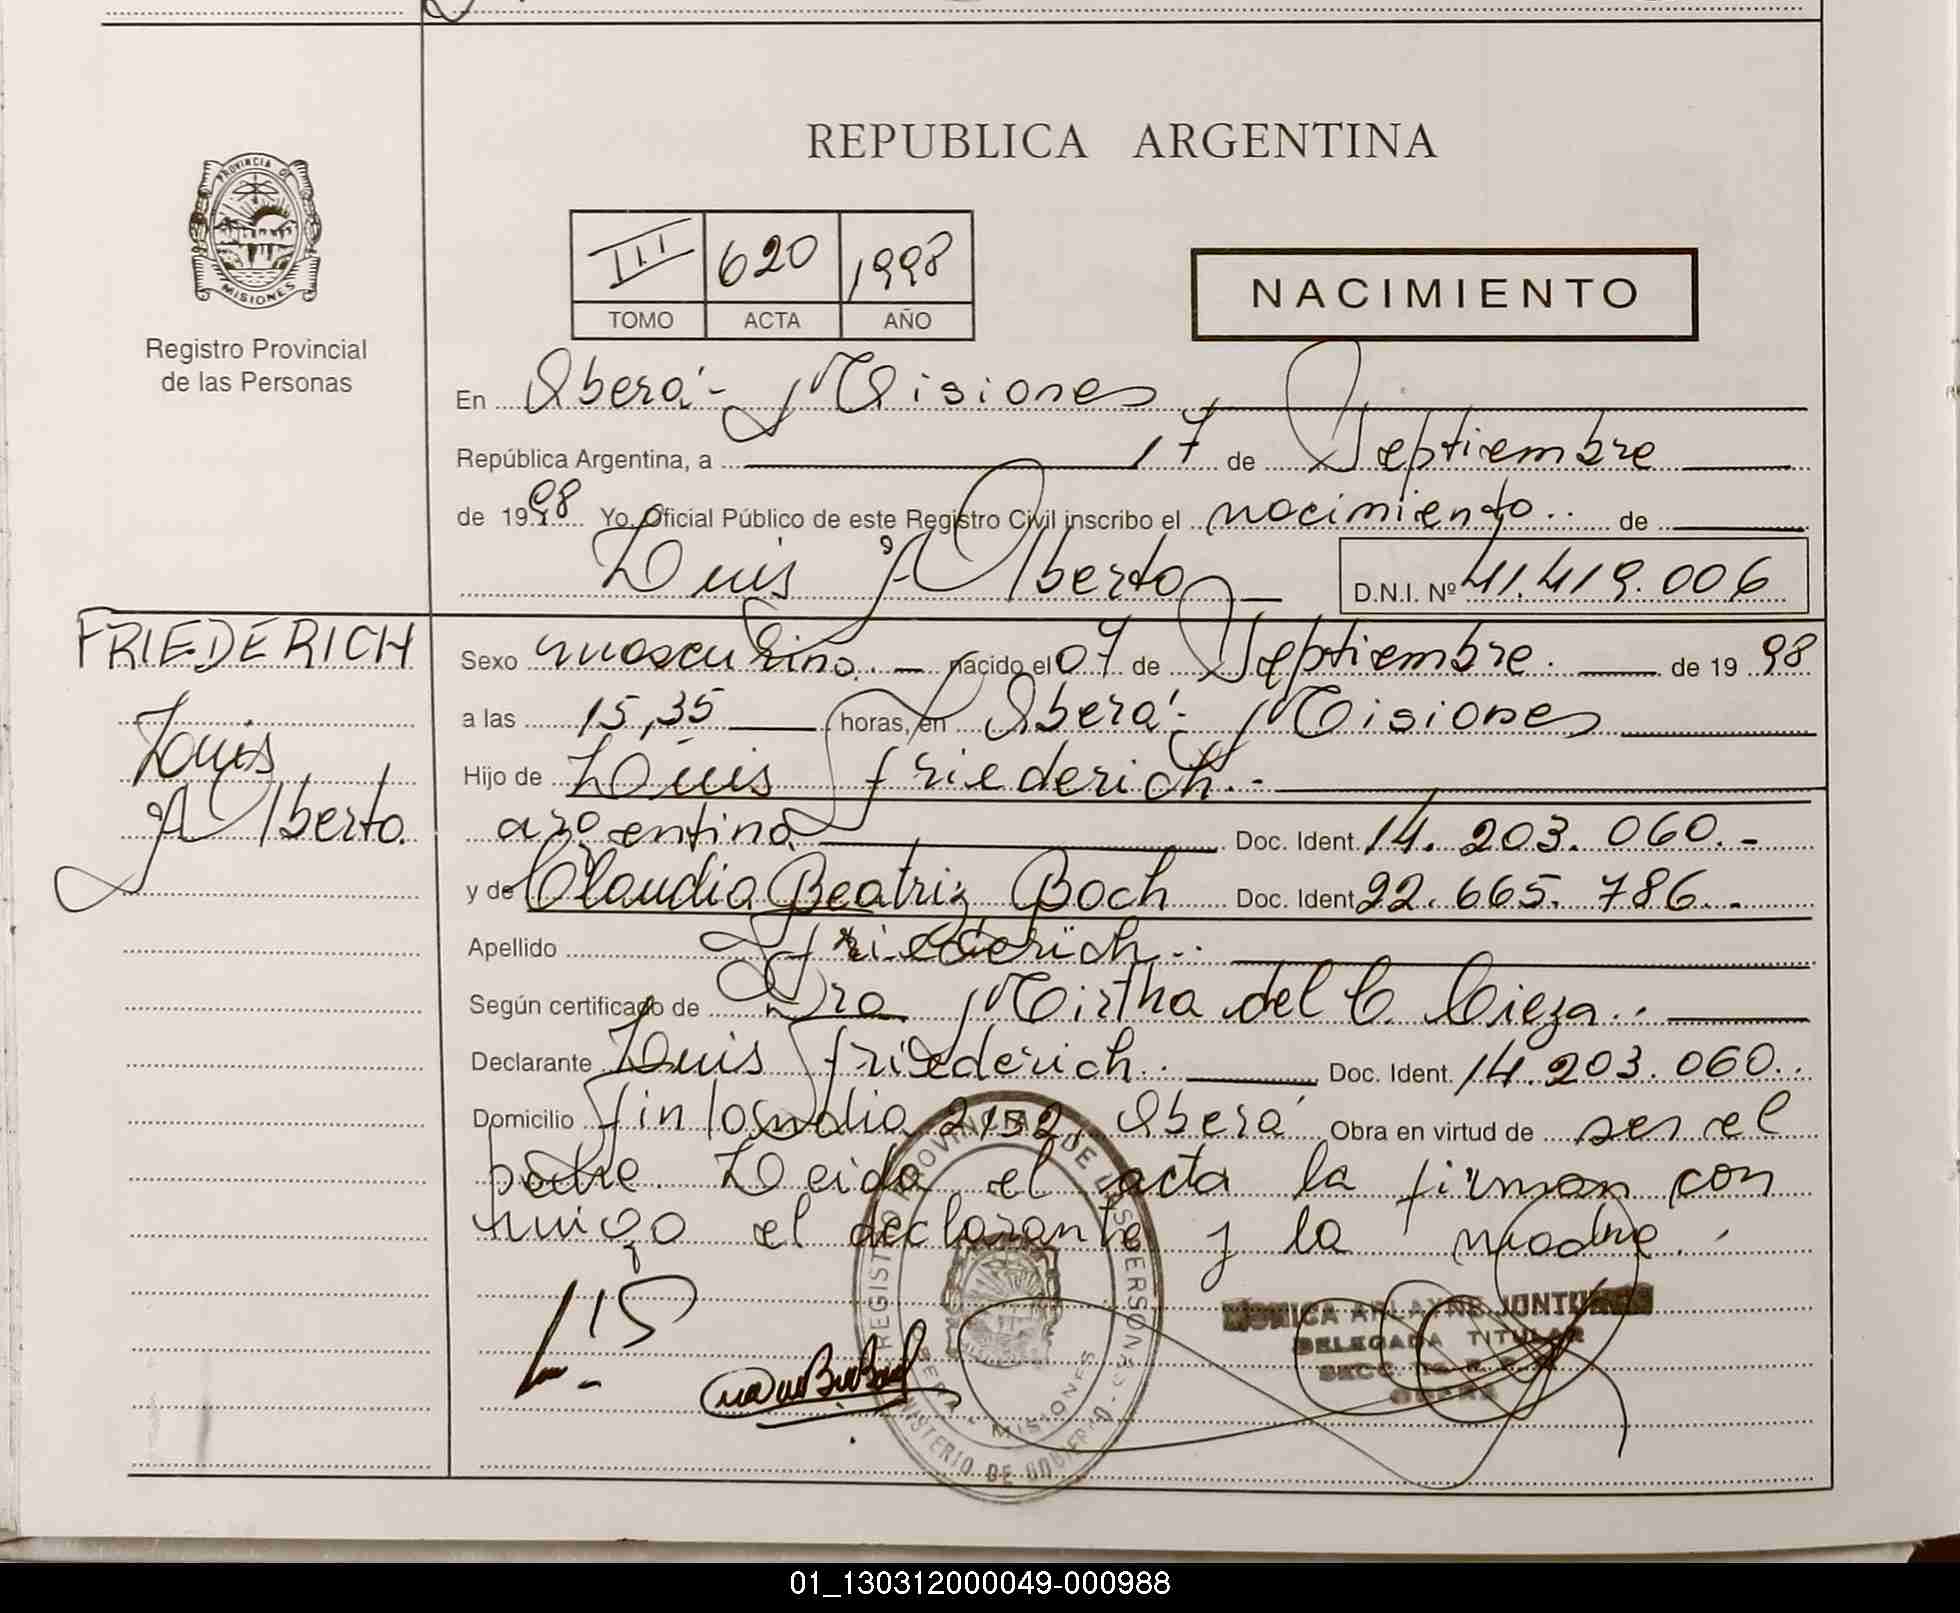 REPUBLICA ARGENTINA
PROVINCIA DE
MISIONES
Registro Provincial
de las Personas
III 620 1998
TOMO ACTA AÑO
NACIMIENTO
En Oberá - Misiones
República Argentina, a 17 de Septiembre
de 1998 Yo, Oficial Público de este Registro Civil inscribo el nacimiento.. de
Luis Alberto D.N.I. Nº 41.419.006
FRIEDERICH
Luis
Alberto.
Sexo masculino. nacido el 07 de Septiembre. de 19 98
a las 15,35 horas, en Oberá - Misiones
Hijo de Luis Friederich.-
argentino Doc. Ident. 14.203.060.-
y de Claudia Beatriz Boch Doc. Ident. 22.665.786.-
Apellido Friederich.-
Según certificado de Dra Mirtha del C. Cieza..
Declarante Luis Friederich.. Doc. Ident. 14.203.060..
Domicilio Finlandia 2152, Oberá Obra en virtud de ser el
padre. Leida el acta la firman con
migo el declarante y la madre.-
REGISTRO PROVINCIAL DE LAS PERSONAS
MISIONES
MINISTERIO DE GOBIERNO
DELEGADA TITULAR
OBERA
01_130312000049-000988